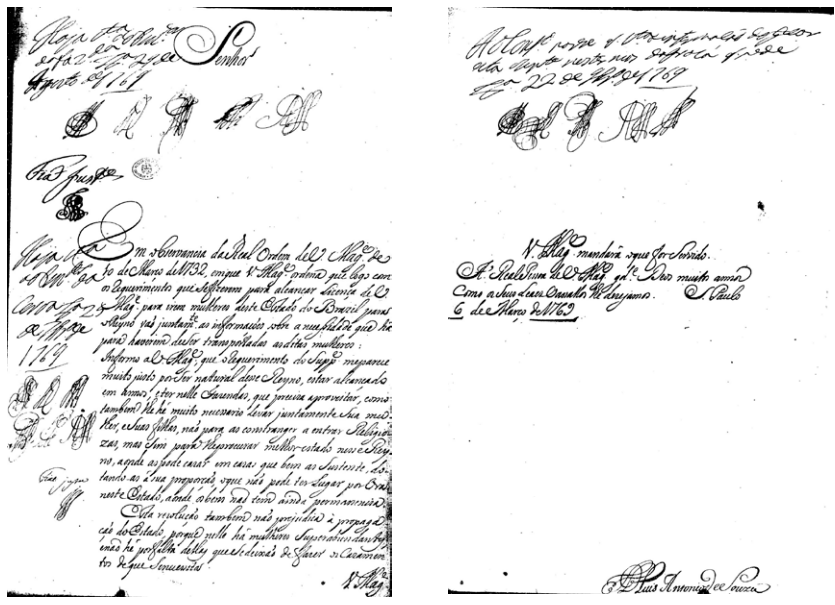 Haja vta o Proc.or
da faz.da Lxa 21 de
Agosto de 1769
Senhor
Em observancia da Real Ordem de V. Mag.e de
30 de Março de 1732, em que V. Mag.e ordena que logo com
o Requerimento que se fizerem para alcançar Licença de V.
Mag.e para virem mulheres deste Estado do Brazil para o
Reyno vaõ juntam.te as informaçoens sobre a necessidade que há
para haverem de ser transportadas as ditas mulheres:
Informo a V. Mag.e, que o Requerimento do Supp.e me parece
muito justo por ser natural desse Reyno, estar alcançado
em annos, e ter nelle fazendas, que precisa aproveitar, como
tambem lhe há muito necessario levar juntamente sua mu-
lher, e suas filhas, naõ para as constranger a entrar Religio-
zas, mas sim para lhe procurar melhor estado nesse Rey-
no, aonde as pode cazar em cazas que bem as sustente, do-
tando-as á sua proporçaõ, o que naõ pode ter lugar por Ora
neste Estado, aonde os bens naõ tem ainda permanencia.
Esta resoluçaõ tambem naõ prejudica á propaga-
çaõ do Estado, porque nelle há mulheres superabundantes,
e naõ he por falta dellas que se deixaõ de fazer os Cazamen-
tos de que se necessita.
V. Mag.e
Haja vta
o Proc.or da
Coroa Lxa 2
de
1769
Lxa 22 de de 1769
V. Mag.e mandará o que for Servido.
A Real Pessoa de V. Mag.e gd.e Deos muitos annos
Como os seus Leaes Vassallos lhe dezejamos. S. Paulo
6 de Março de 1769
D. Luis Antonio de Souza